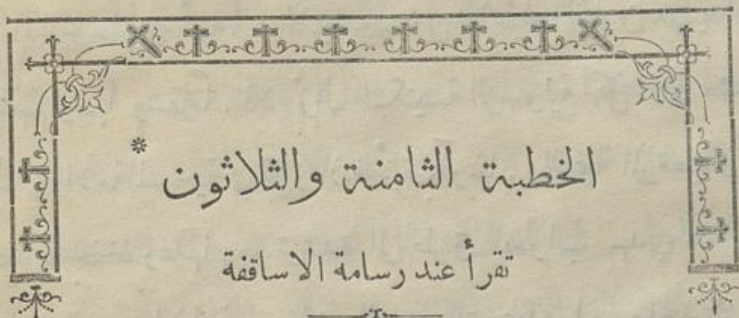 الخطبة الثامنة والثلاثون *
تقرأ عند رسامة الاساقفة